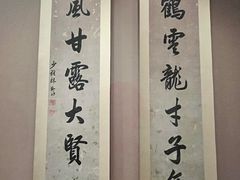 鶴雲龍才子
風甘露大賢
少穆林則徐